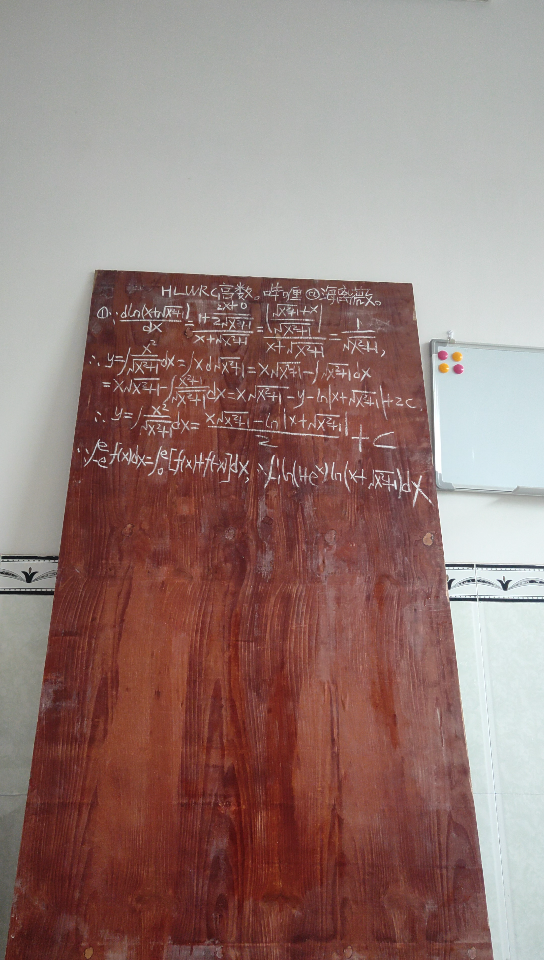 HLWRC高数。
①∵dln(x+√(x²+1))/dx=(1+(2x+0)/(2√(x²+1)))/(x+√(x²+1))=|(√(x²+1)+x)/√(x²+1)|/(x+√(x²+1))=1/√(x²+1),
∴y=∫x²/√(x²+1)dx=∫xd√(x²+1)=x√(x²+1)-∫√(x²+1)dx
=x√(x²+1)-∫(x²+1)/√(x²+1)dx=x√(x²+1)-y-ln|x+√(x²+1)|+2C.
∴y=∫x²/√(x²+1)dx=(x√(x²+1)-ln|x+√(x²+1)|)/2+C
∵∫₋ₑᵉf(x)dx=∫₀ᵉ[f(x)+f(-x)]dx,∴∫ln(1+eˣ)ln(x+√(x²+1))dx